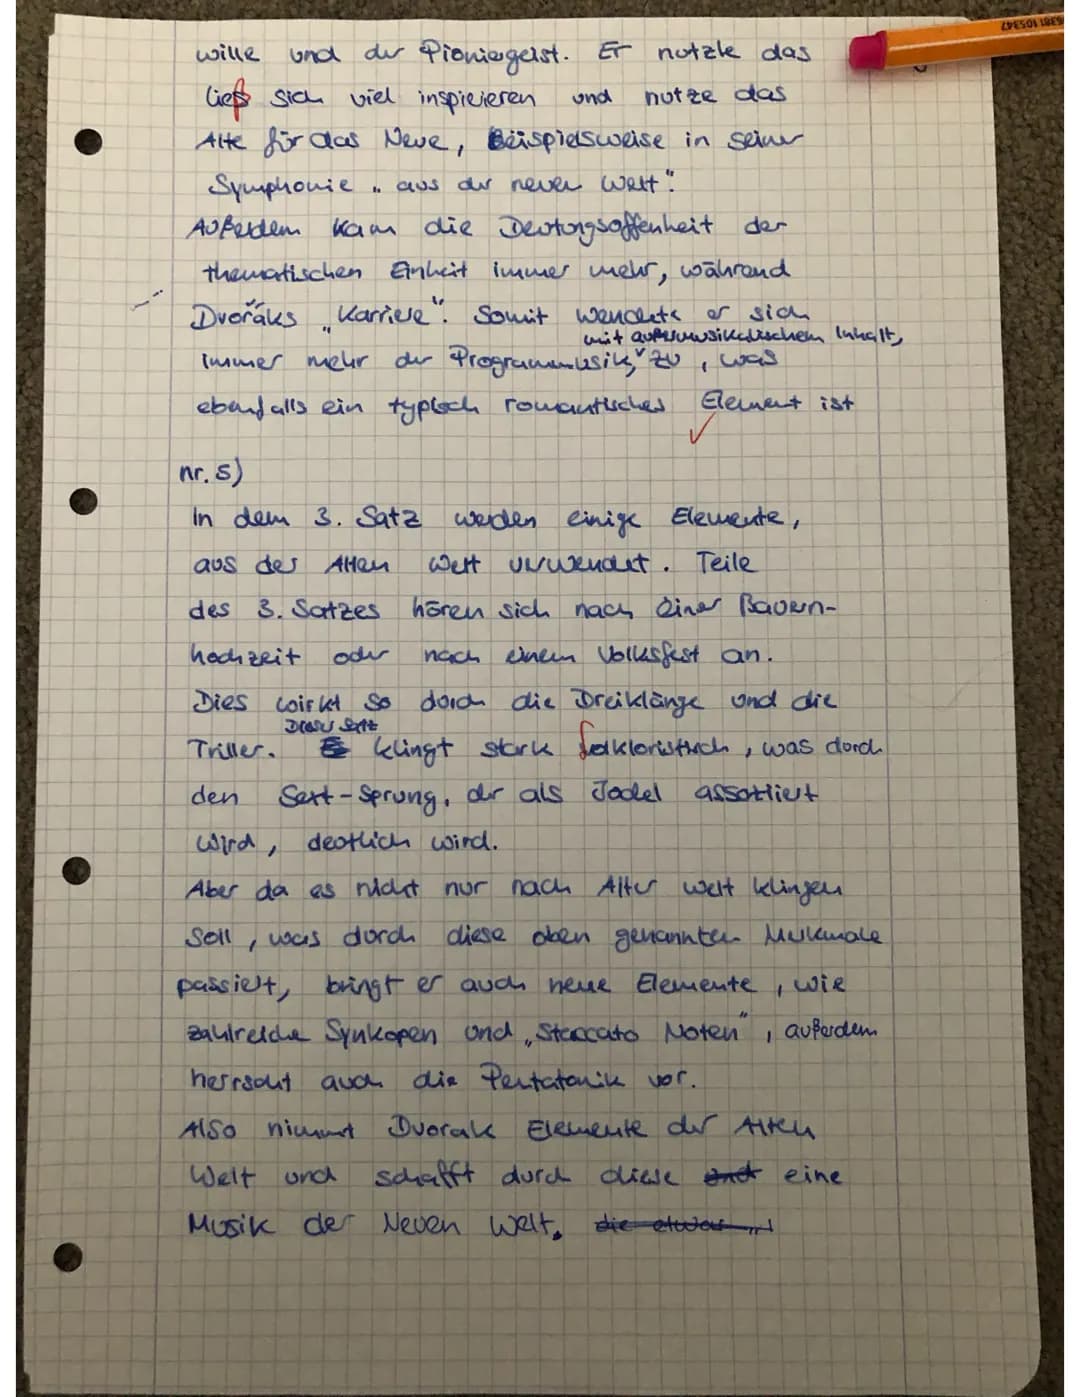 wille und der Pioniergeist. Er nutzte das
ließ sich viel inspirieren und nutze das
Alte für das Neue, Beispielsweise in seiner
Symphonie „aus der neuen Welt".
Außerdem kam die Deutungsoffenheit der
thematischen Einheit immer mehr, während
Dvořáks „Karriere". Somit wendete er sich
mit außermusikalischem Inhalt,
immer mehr der Programmusik, zu, was
ebenfalls ein typisch romantisches Element ist
nr. 5)
In dem 3. Satz werden einige Elemente,
aus der Alten Welt verwendet. Teile
des 3. Satzes hören sich nach einer Bauern-
hochzeit oder nach einem Volksfest an.
Dies wirkt so durch die Dreiklänge und die
Dieser Satz
Triller. Es klingt stark folkloristisch, was durch
den Sext-Sprung, der als Jodel assoziiert
wird, deutlich wird.
Aber da es nicht nur nach Alter Welt klingen
soll, was durch diese oben genannten Merkmale
passiert, bringt er auch neue Elemente, wie
zahlreiche Synkopen und „Staccato Noten", außerdem
herrscht auch die Pentatonik vor.
Also nimmt Dvorak Elemente der Alten
Welt und schafft durch diese und eine
Musik der Neuen Welt. die etwas